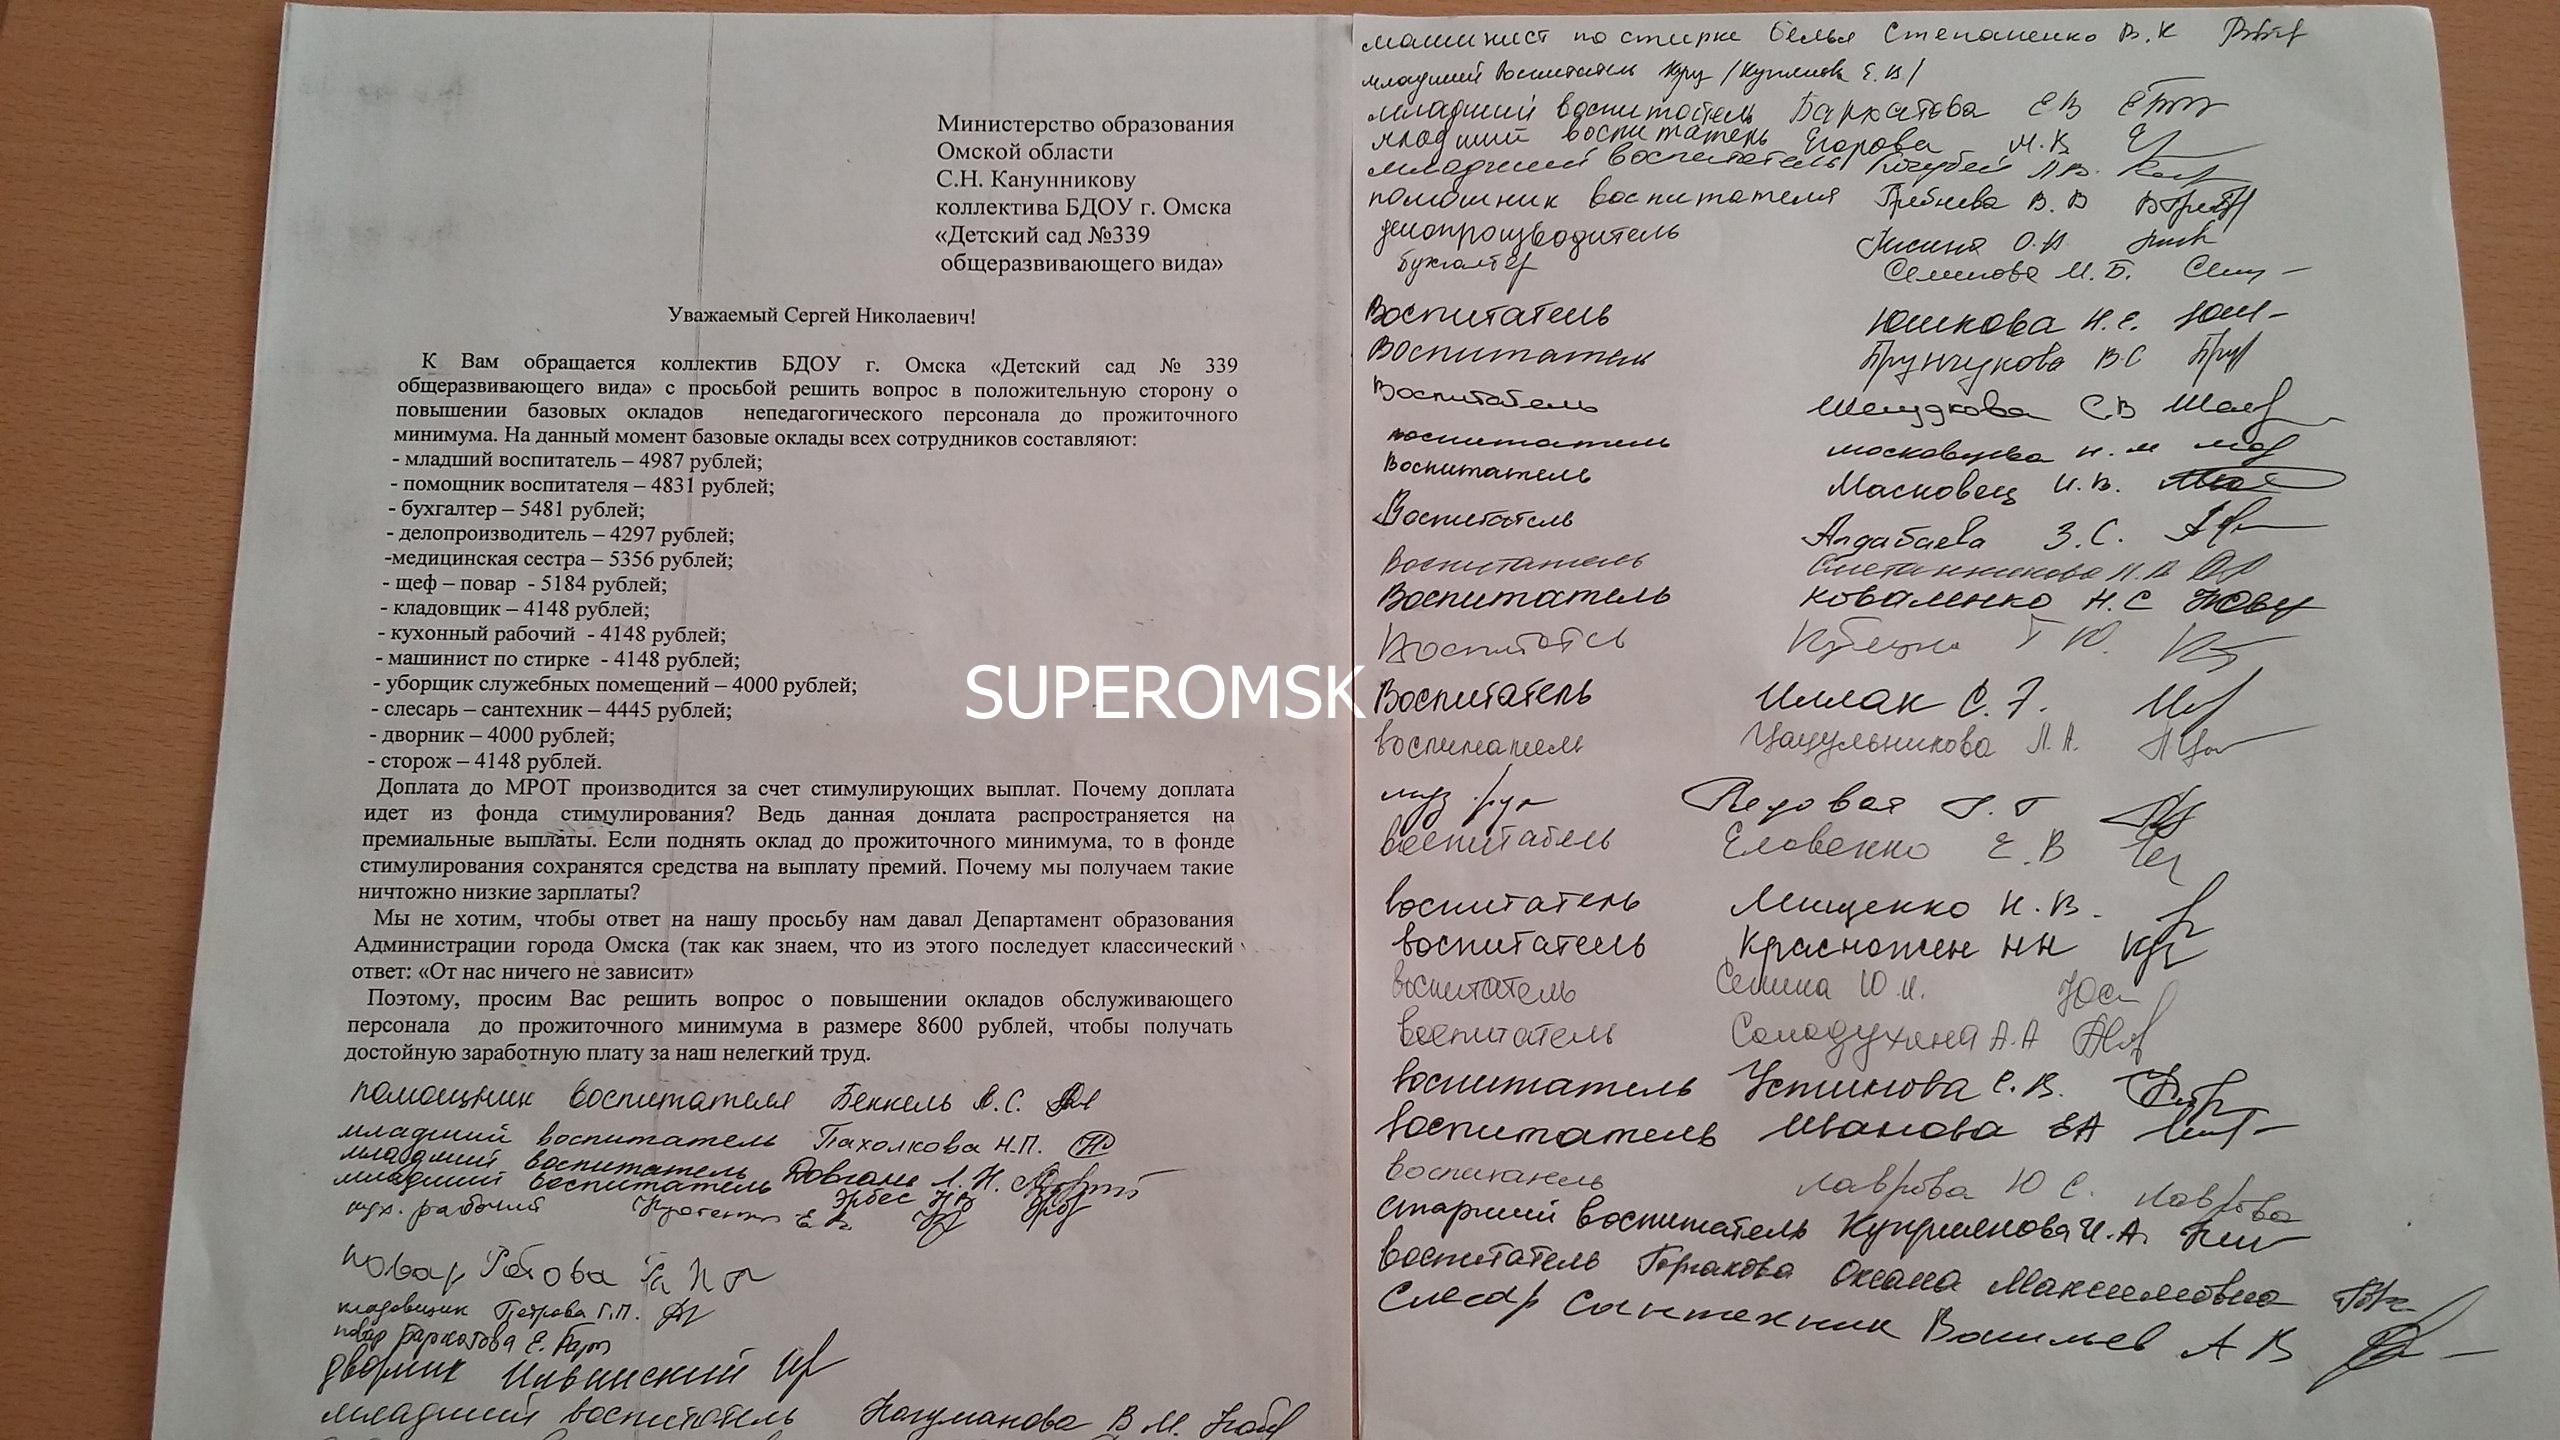 Министерство образования
Омской области
С.Н. Канунникову
коллектива БДОУ г. Омска
«Детский сад №339
общеразвивающего вида»
Уважаемый Сергей Николаевич!
К Вам обращается коллектив БДОУ г. Омска «Детский сад № 339
общеразвивающего вида» с просьбой решить вопрос в положительную сторону о
повышении базовых окладов непедагогического персонала до прожиточного
минимума. На данный момент базовые оклады всех сотрудников составляют:
- младший воспитатель – 4987 рублей;
- помощник воспитателя – 4831 рублей;
- бухгалтер – 5481 рублей;
- делопроизводитель – 4297 рублей;
-медицинская сестра – 5356 рублей;
- щеф – повар - 5184 рублей;
- кладовщик – 4148 рублей;
- кухонный рабочий - 4148 рублей;
- машинист по стирке - 4148 рублей;
- уборщик служебных помещений – 4000 рублей;
- слесарь – сантехник – 4445 рублей;
- дворник – 4000 рублей;
- сторож – 4148 рублей.
Доплата до МРОТ производится за счет стимулирующих выплат. Почему доплата
идет из фонда стимулирования? Ведь данная доплата распространяется на
премиальные выплаты. Если поднять оклад до прожиточного минимума, то в фонде
стимулирования сохранятся средства на выплату премий. Почему мы получаем такие
ничтожно низкие зарплаты?
Мы не хотим, чтобы ответ на нашу просьбу нам давал Департамент образования
Администрации города Омска (так как знаем, что из этого последует классический
ответ: «От нас ничего не зависит»
Поэтому, просим Вас решить вопрос о повышении окладов обслуживающего
персонала до прожиточного минимума в размере 8600 рублей, чтобы получать
достойную заработную плату за наш нелегкий труд.
помощник воспитателя Беккель А.С.
младший воспитатель Пахолкова Н.П.
младший воспитатель Довгань Л.Н.
младший воспитатель Эрбес НВ
кух. рабочий
повар
кладовщик Петрова Г.П.
повар Баркатова Е.
дворник Ильинский
младший воспитатель Нагуманова В М.
SUPEROMSK
машинист по стирке белья Степаненко В.К
младший воспитатель
младший воспитатель Баркатова Е В
младший воспитатель Егорова М.В
младший воспитатель Кочубей Л.В.
помошник воспитателя Гребнева В.В
делопроизводитель О.Н
бухгалтер Семенова М.Б.
Воспитатель Юшкова Н.Е.
Воспитатель Прунчукова В.С
Воспитатель Шелудкова С.В
воспитатель московцева н.м
Воспитатель Масковец И.В.
Воспитатель Алдабаева З.С.
Воспитатель Сметанникова
Воспитатель Коваленко Н.С
Воспитатель Т Ю.
Воспитатель Иллак С.
воспитатель Цацульникова Л.А.
муз.рук Г.Г
воспитатель Еловенко Е.В
воспитатель Мищенко Н.В.
воспитатель Красножен НН
воспитатель Семина Ю.И.
воспитатель Солодухина А.А
воспитатель Устинова С.В.
воспитатель Иванова ЕА
воспитатель Лаврова Ю С. Лаврова
старший воспитатель Куприянова И.А.
воспитатель Горчакова Оксана Максимовна
Слесар Сантехник Васильев А В